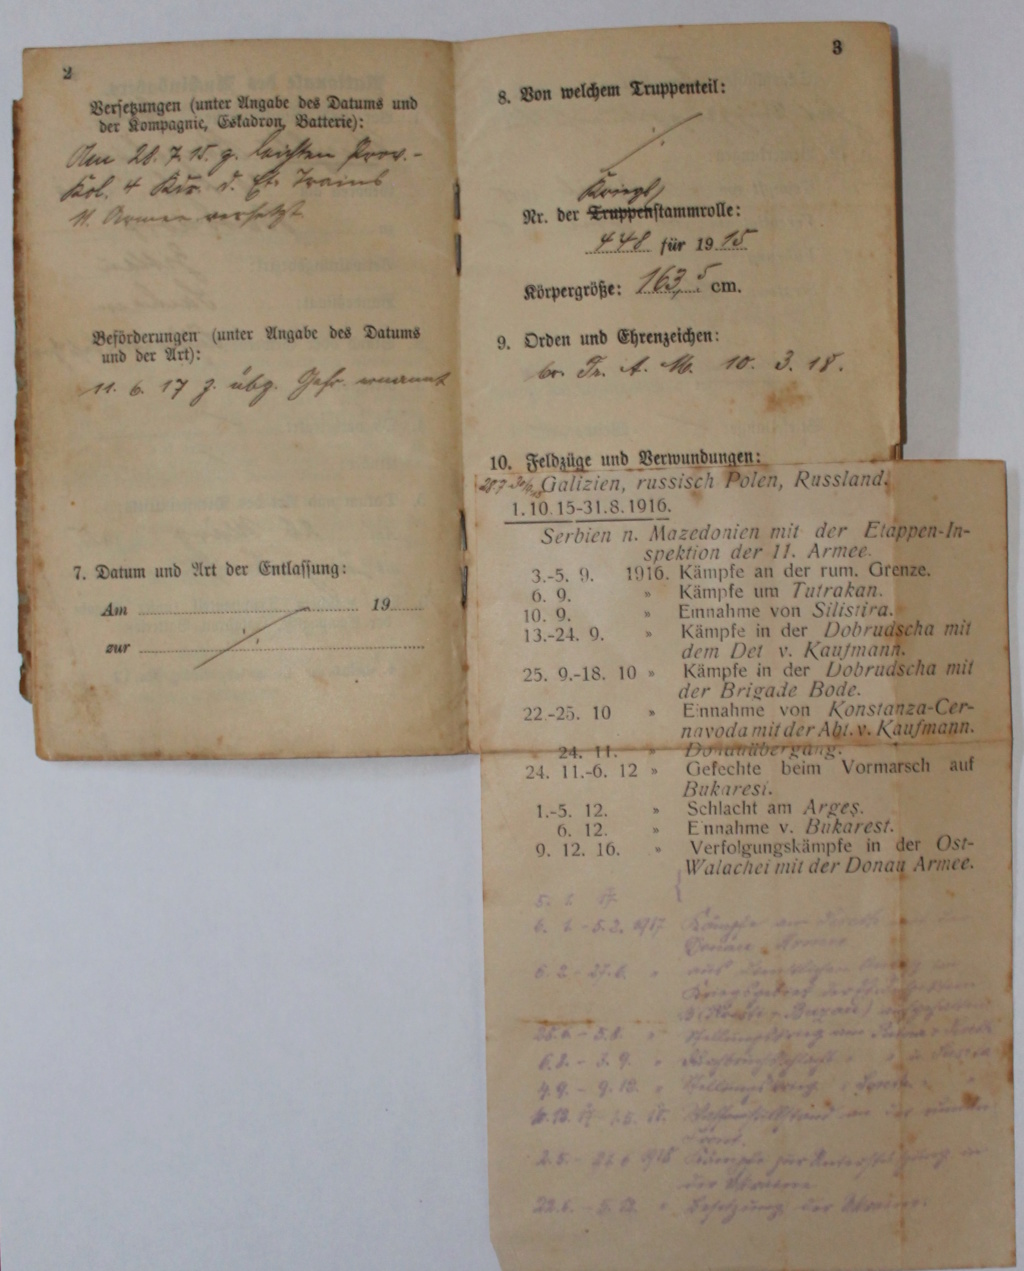 2
Versetzungen (unter Angabe des Datums und
der Kompagnie, Eskadron, Batterie):
Am 28. 7. 15. z. leichten Prov.-
Kol. 4 d. Et. Trains
11. Armee versetzt
Beförderungen (unter Angabe des Datums
und der Art):
11. 6. 17 z. übz. Gefr. ernannt
7. Datum und Art der Entlassung:
Am 19
zur
3
8. Von welchem Truppenteil:
Kriegs
Nr. der Truppenstammrolle:
448 für 1915
Körpergröße: 163,5 cm.
9. Orden und Ehrenzeichen:
br. Fr. A. M. 10. 3. 18.
10. Feldzüge und Verwundungen:
Galizien, russisch Polen, Russland.
1. 10. 15-31. 8. 1916.
Serbien n. Mazedonien mit der Etappen-In-
spektion der 11. Armee.
3.-5. 9. 1916. Kämpfe an der rum. Grenze.
6. 9. » Kämpfe um Tutrakan.
10. 9. » Einnahme von Silistira.
13.-24. 9. » Kämpfe in der Dobrudscha mit
dem Det v. Kaufmann.
25. 9.-18. 10 » Kämpfe in der Dobrudscha mit
der Brigade Bode.
22.-25. 10 » Einnahme von Konstanza-Cer-
navoda mit der Abt. v. Kaufmann.
24. 11. » Donauübergang.
24. 11.-6. 12 » Gefechte beim Vormarsch auf
Bukarest.
1.-5. 12. » Schlacht am Argeş.
6. 12. » Einnahme v. Bukarest.
9. 12. 16. » Verfolgungskämpfe in der Ost-
Walachei mit der Donau Armee.
5. 1. 17.
6. 1. - 5. 2. 1917 Kämpfe am
Donau Armee
6. 2. - 27. 6. "
Stellungskrieg am
6. 8. - 3. 9. "
4. 9. - 9. 12. " Stellungskrieg
Waffenstillstand an der rumän.
Front.
1918 Kämpfe zur Unterstützung in
der Ukraine
Besetzung der Ukraine.